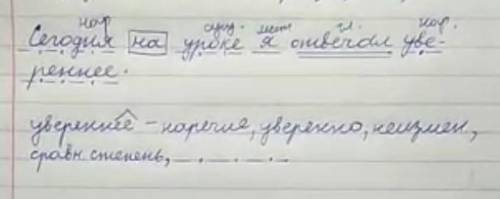 нар. сущ. мест. гл. нар.
Сегодня на уроке я отвечал уве-
реннее.
увереннее - наречие, уверенно, неизмен,
сравн. степень,